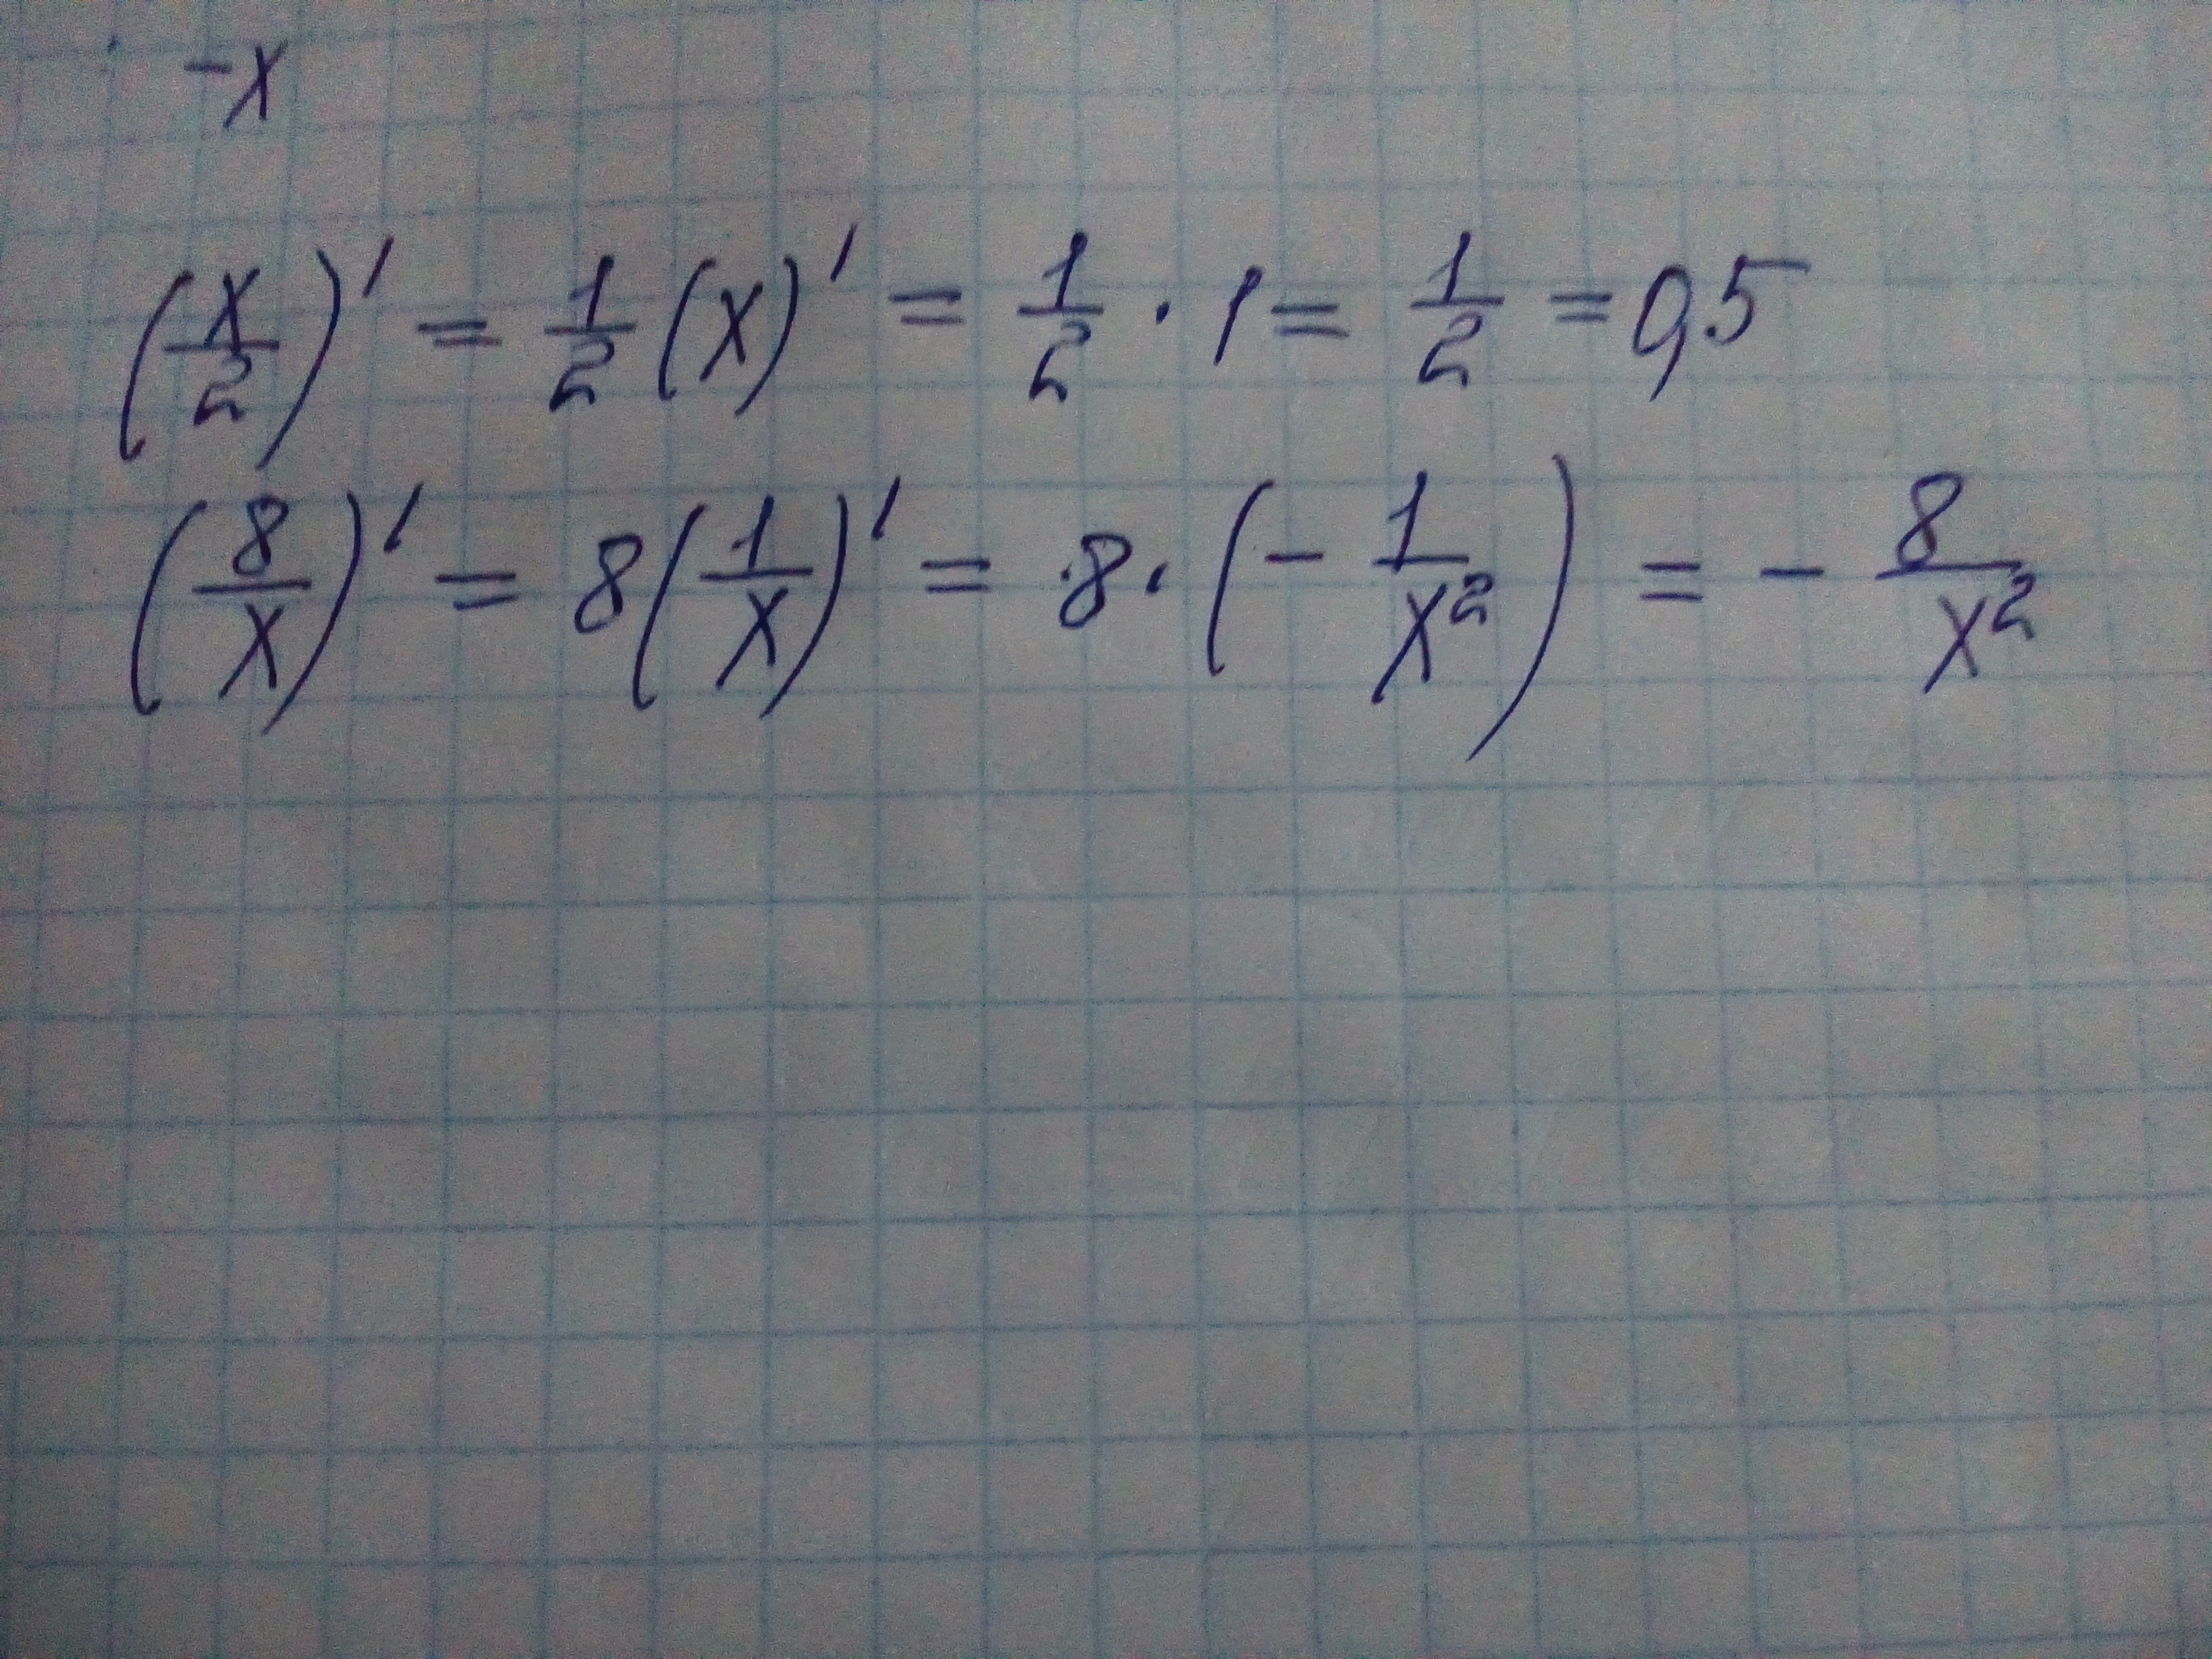 -x
(x/2)' = 1/2 (x)' = 1/2 · 1 = 1/2 = 0,5
(8/x)' = 8(1/x)' = 8 · (- 1/x²) = - 8/x²